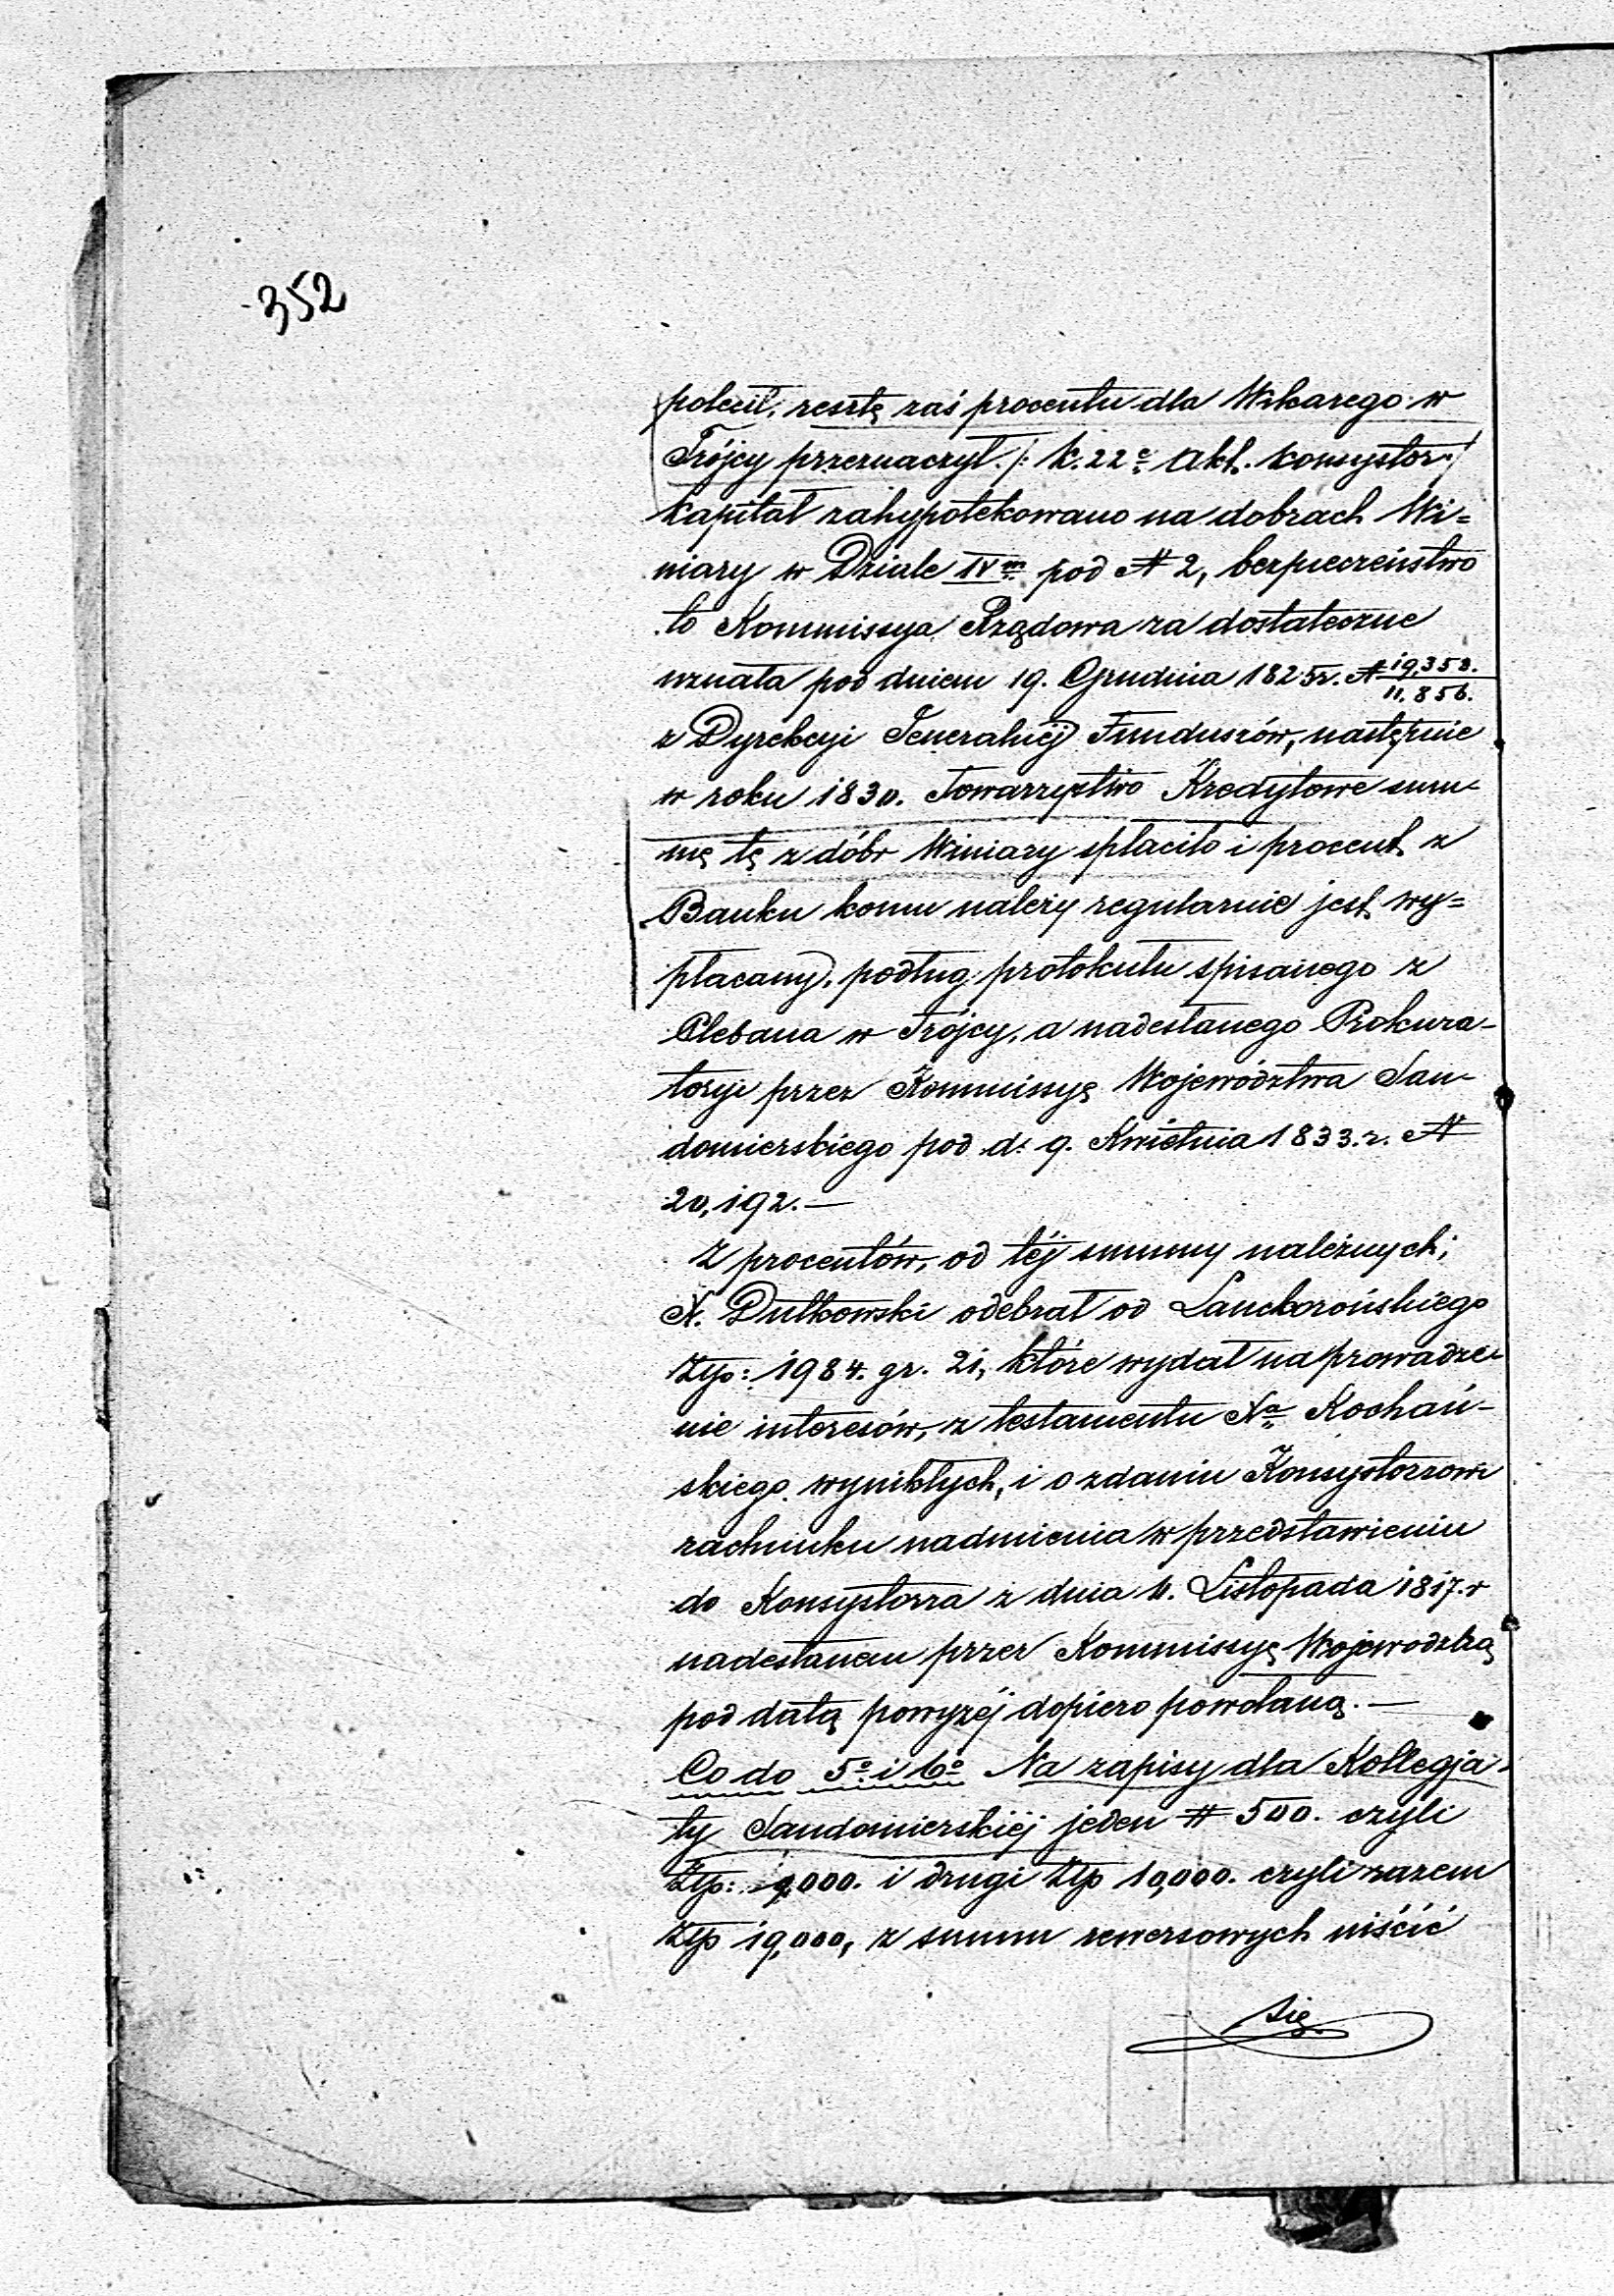 352
polecił, resztę zaś procentu dla Wikarego w
Trójcy przeznaczył. /: k. 22 e akt. konsystor:/
kapitał zahypotekowano na dobrach Wi=
niary w Dziale IV m pod N 2, bezpieczeństwo
to Kommissya Rządowa za dostateczne
uznała pod dniem 19. Grudnia 1825 r. N 19,353./11,856.
z Dyrekcyi Jeneralnéj Funduszów, następnie
w roku 1830. Towarzystwo Kredytowe sum-
mę tę z dóbr Winiary spłaciło i procent z
Banku komu należy regularnie jest wy=
płacany, podług protokułu spisanego z
Plebana w Trójcy, a nadesłanego Prokura-
toryi przez Kommissyę Województwa San-
domierskiego pod d. 9. Kwietnia 1833. r. N
20,192. —
Z procentów, od téj summy należnych;
X. Dutkowski odebrał od Lanckorońskiego
Złp: 1984. gr. 21, które wydał na prowadze-
nie interesów, z testamentu Xa Kochań-
skiego wynikłych, i o zdaniu Konsystorzowi
rachunku nadmienia w przedstawieniu
do Konsystorza z dnia 11. Listopada 1817. r
nadesłanem przez Kommissyę Wojewodzką
pod datą powyżéj dopiero powołaną. —
Co do 5o i 6o Na zapisy dla Kollegja-
ty Sandomierskiéj jeden # 500. czyli
Złp: 9,000. i drugi Złp 10,000. czyli razem
Złp 19,000, z summ rewersowych uiścić
się